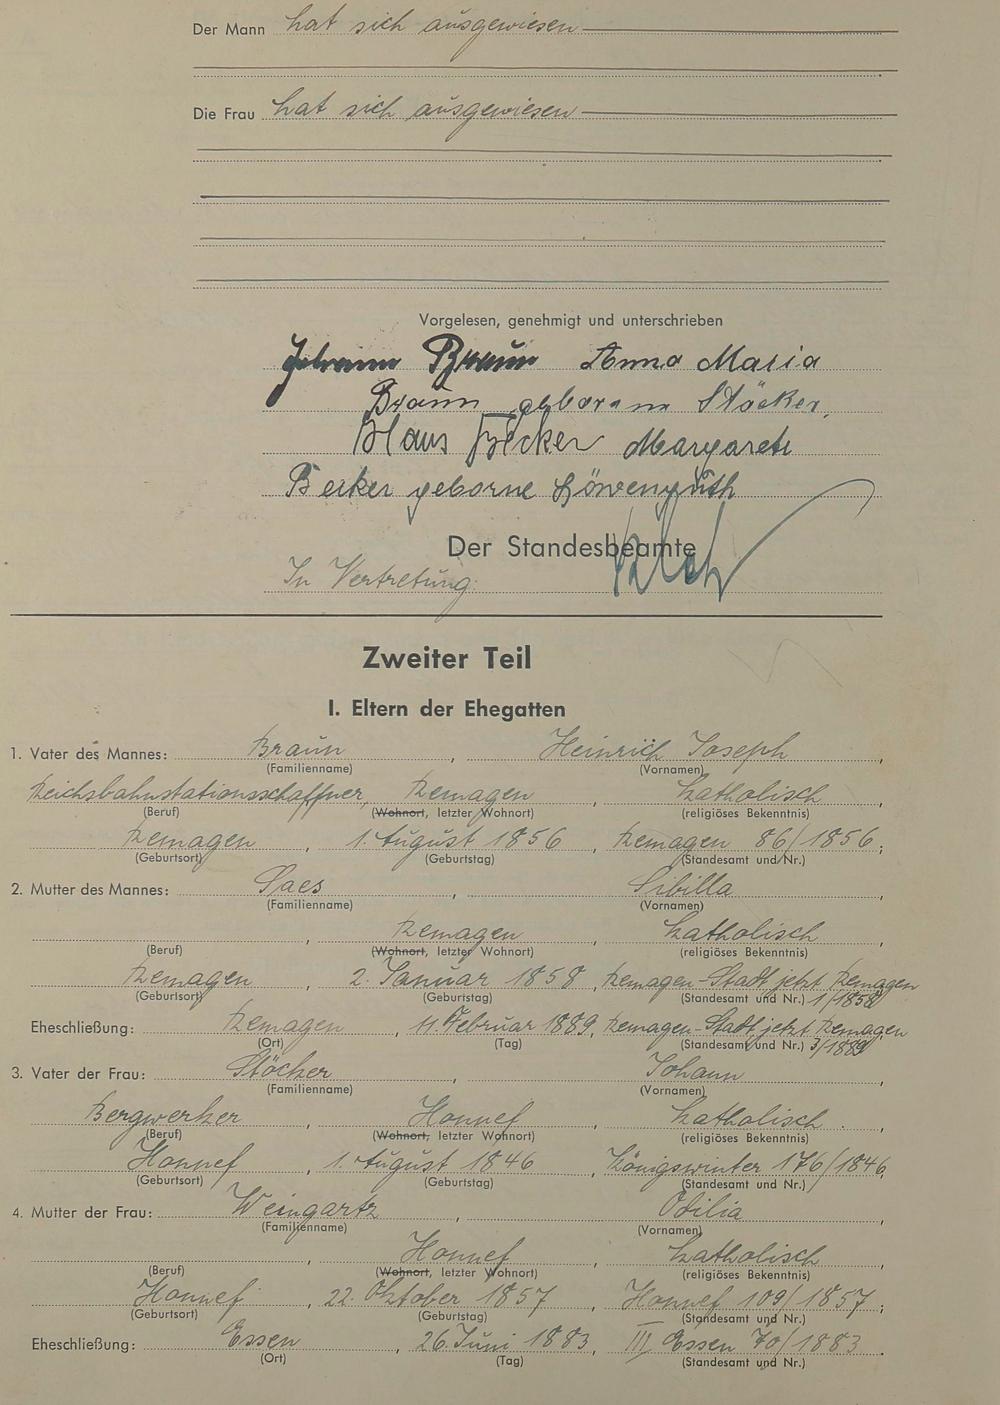 Der Mann hat sich ausgewiesen
Die Frau hat sich ausgewiesen
Vorgelesen, genehmigt und unterschrieben
Johann Braun Anna Maria
Braun geborene Stöcker,
Hans Becker Margarete
Becker geborne Löwenguth
Der Standesbeamte
In Vertretung:
Zweiter Teil
I. Eltern der Ehegatten
1. Vater des Mannes: Braun, Heinrich Joseph,
(Familienname) (Vornamen)
Reichsbahnstationsschaffner, Remagen, katholisch,
(Beruf) (Wohnort, letzter Wohnort) (religiöses Bekenntnis)
Remagen, 1. August 1856, Remagen 86/1856;
(Geburtsort) (Geburtstag) (Standesamt und Nr.)
2. Mutter des Mannes: Saes, Sibilla,
(Familienname) (Vornamen)
, Remagen, katholisch,
(Beruf) (Wohnort, letzter Wohnort) (religiöses Bekenntnis)
Remagen, 2. Januar 1858, Remagen-Stadt jetzt Remagen
(Geburtsort) (Geburtstag) (Standesamt und Nr.) 1/1858
Eheschließung: Remagen, 11. Februar 1889, Remagen-Stadt jetzt Remagen
(Ort) (Tag) (Standesamt und Nr.) 3/1889
3. Vater der Frau: Stöcker, Johann,
(Familienname) (Vornamen)
Bergwerker, Honnef, katholisch,
(Beruf) (Wohnort, letzter Wohnort) (religiöses Bekenntnis)
Honnef, 1. August 1846, Königswinter 176/1846,
(Geburtsort) (Geburtstag) (Standesamt und Nr.)
4. Mutter der Frau: Weingartz, Odilia,
(Familienname) (Vornamen)
, Honnef, katholisch,
(Beruf) (Wohnort, letzter Wohnort) (religiöses Bekenntnis)
Honnef, 22. Oktober 1857, Honnef 109/1857;
(Geburtsort) (Geburtstag) (Standesamt und Nr.)
Eheschließung: Essen, 26. Juni 1883, III Essen 70/1883
(Ort) (Tag) (Standesamt und Nr.)